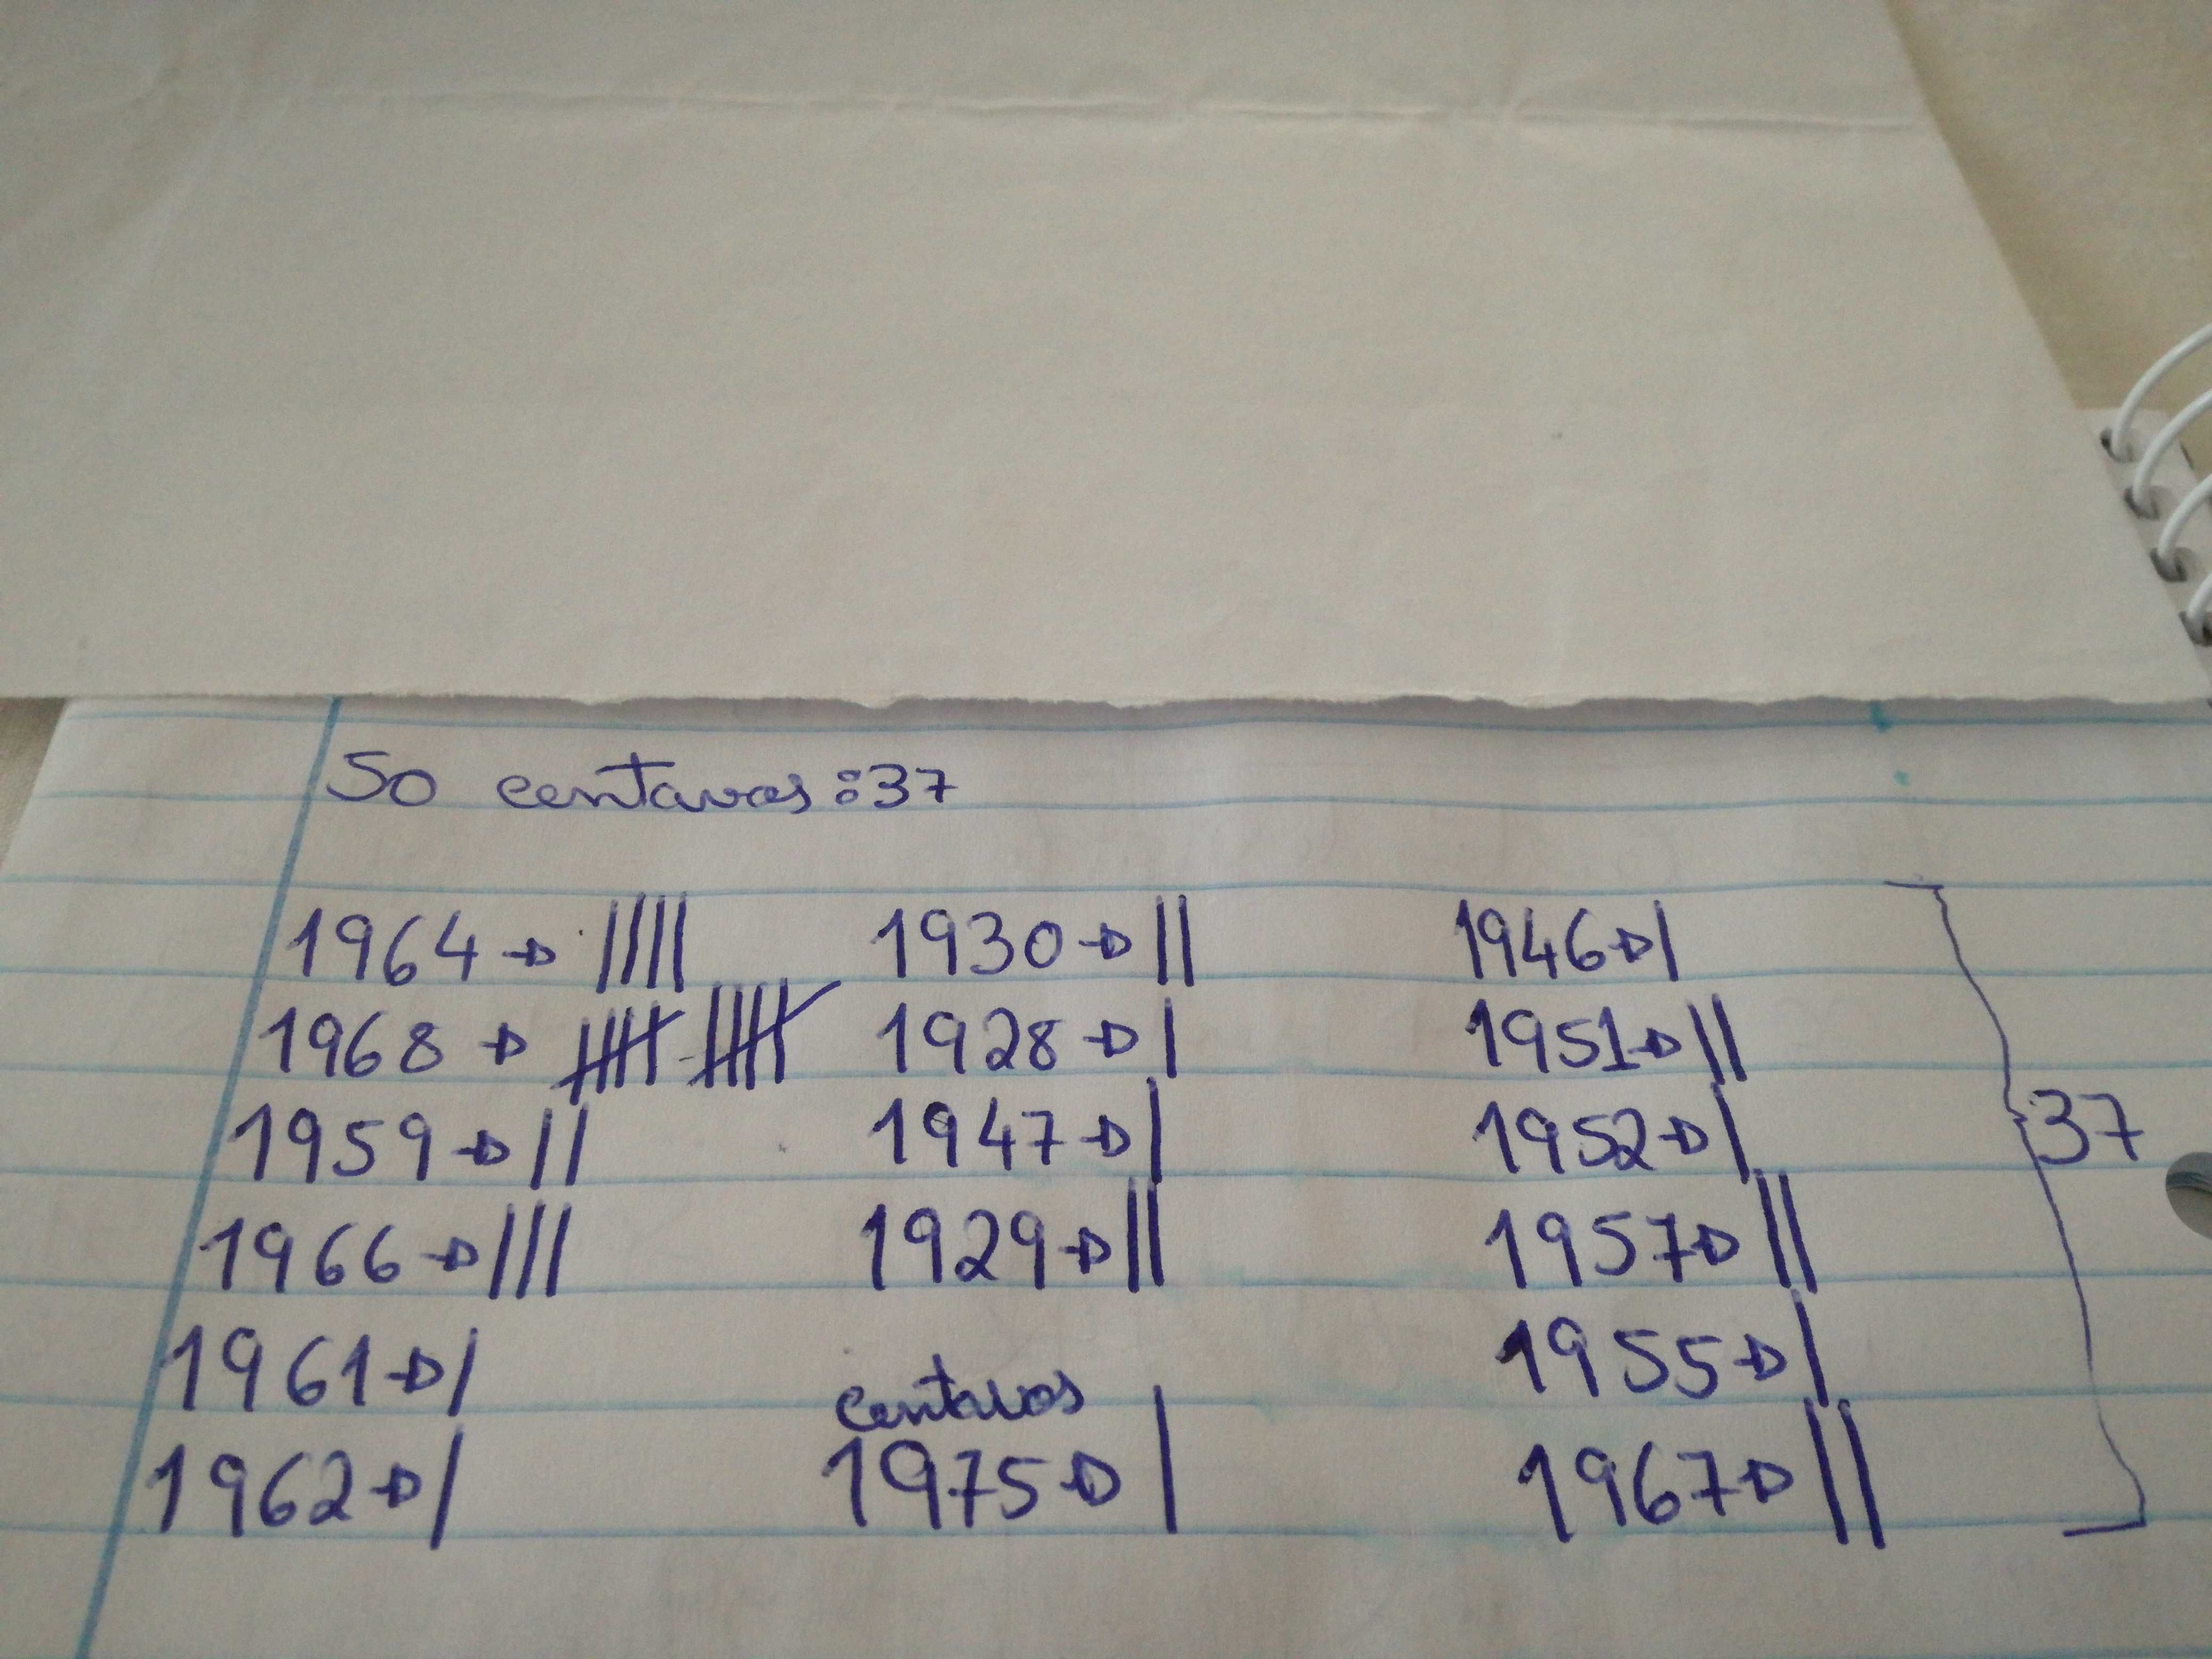 50 centavos:37
1964→ |||| 1930→ || 1946→ |
1968→ 卌 卌 1928→ | 1951→ ||
1959→ || 1947→ | 1952→ |
1966→ ||| 1929→ || 1957→ ||
1961→ | 1955→ |
centavos
1962→ | 1975→ | 1967→ ||
37